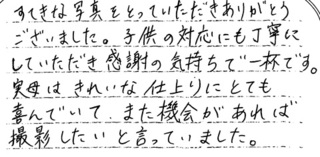 すてきな写真をとっていただきありがとう
ございました。子供の対応にも丁寧に
していただき感謝の気持ちで一杯です。
実母はきれいな仕上りにとても
喜んでいて、また機会があれば
撮影したいと言っていました。